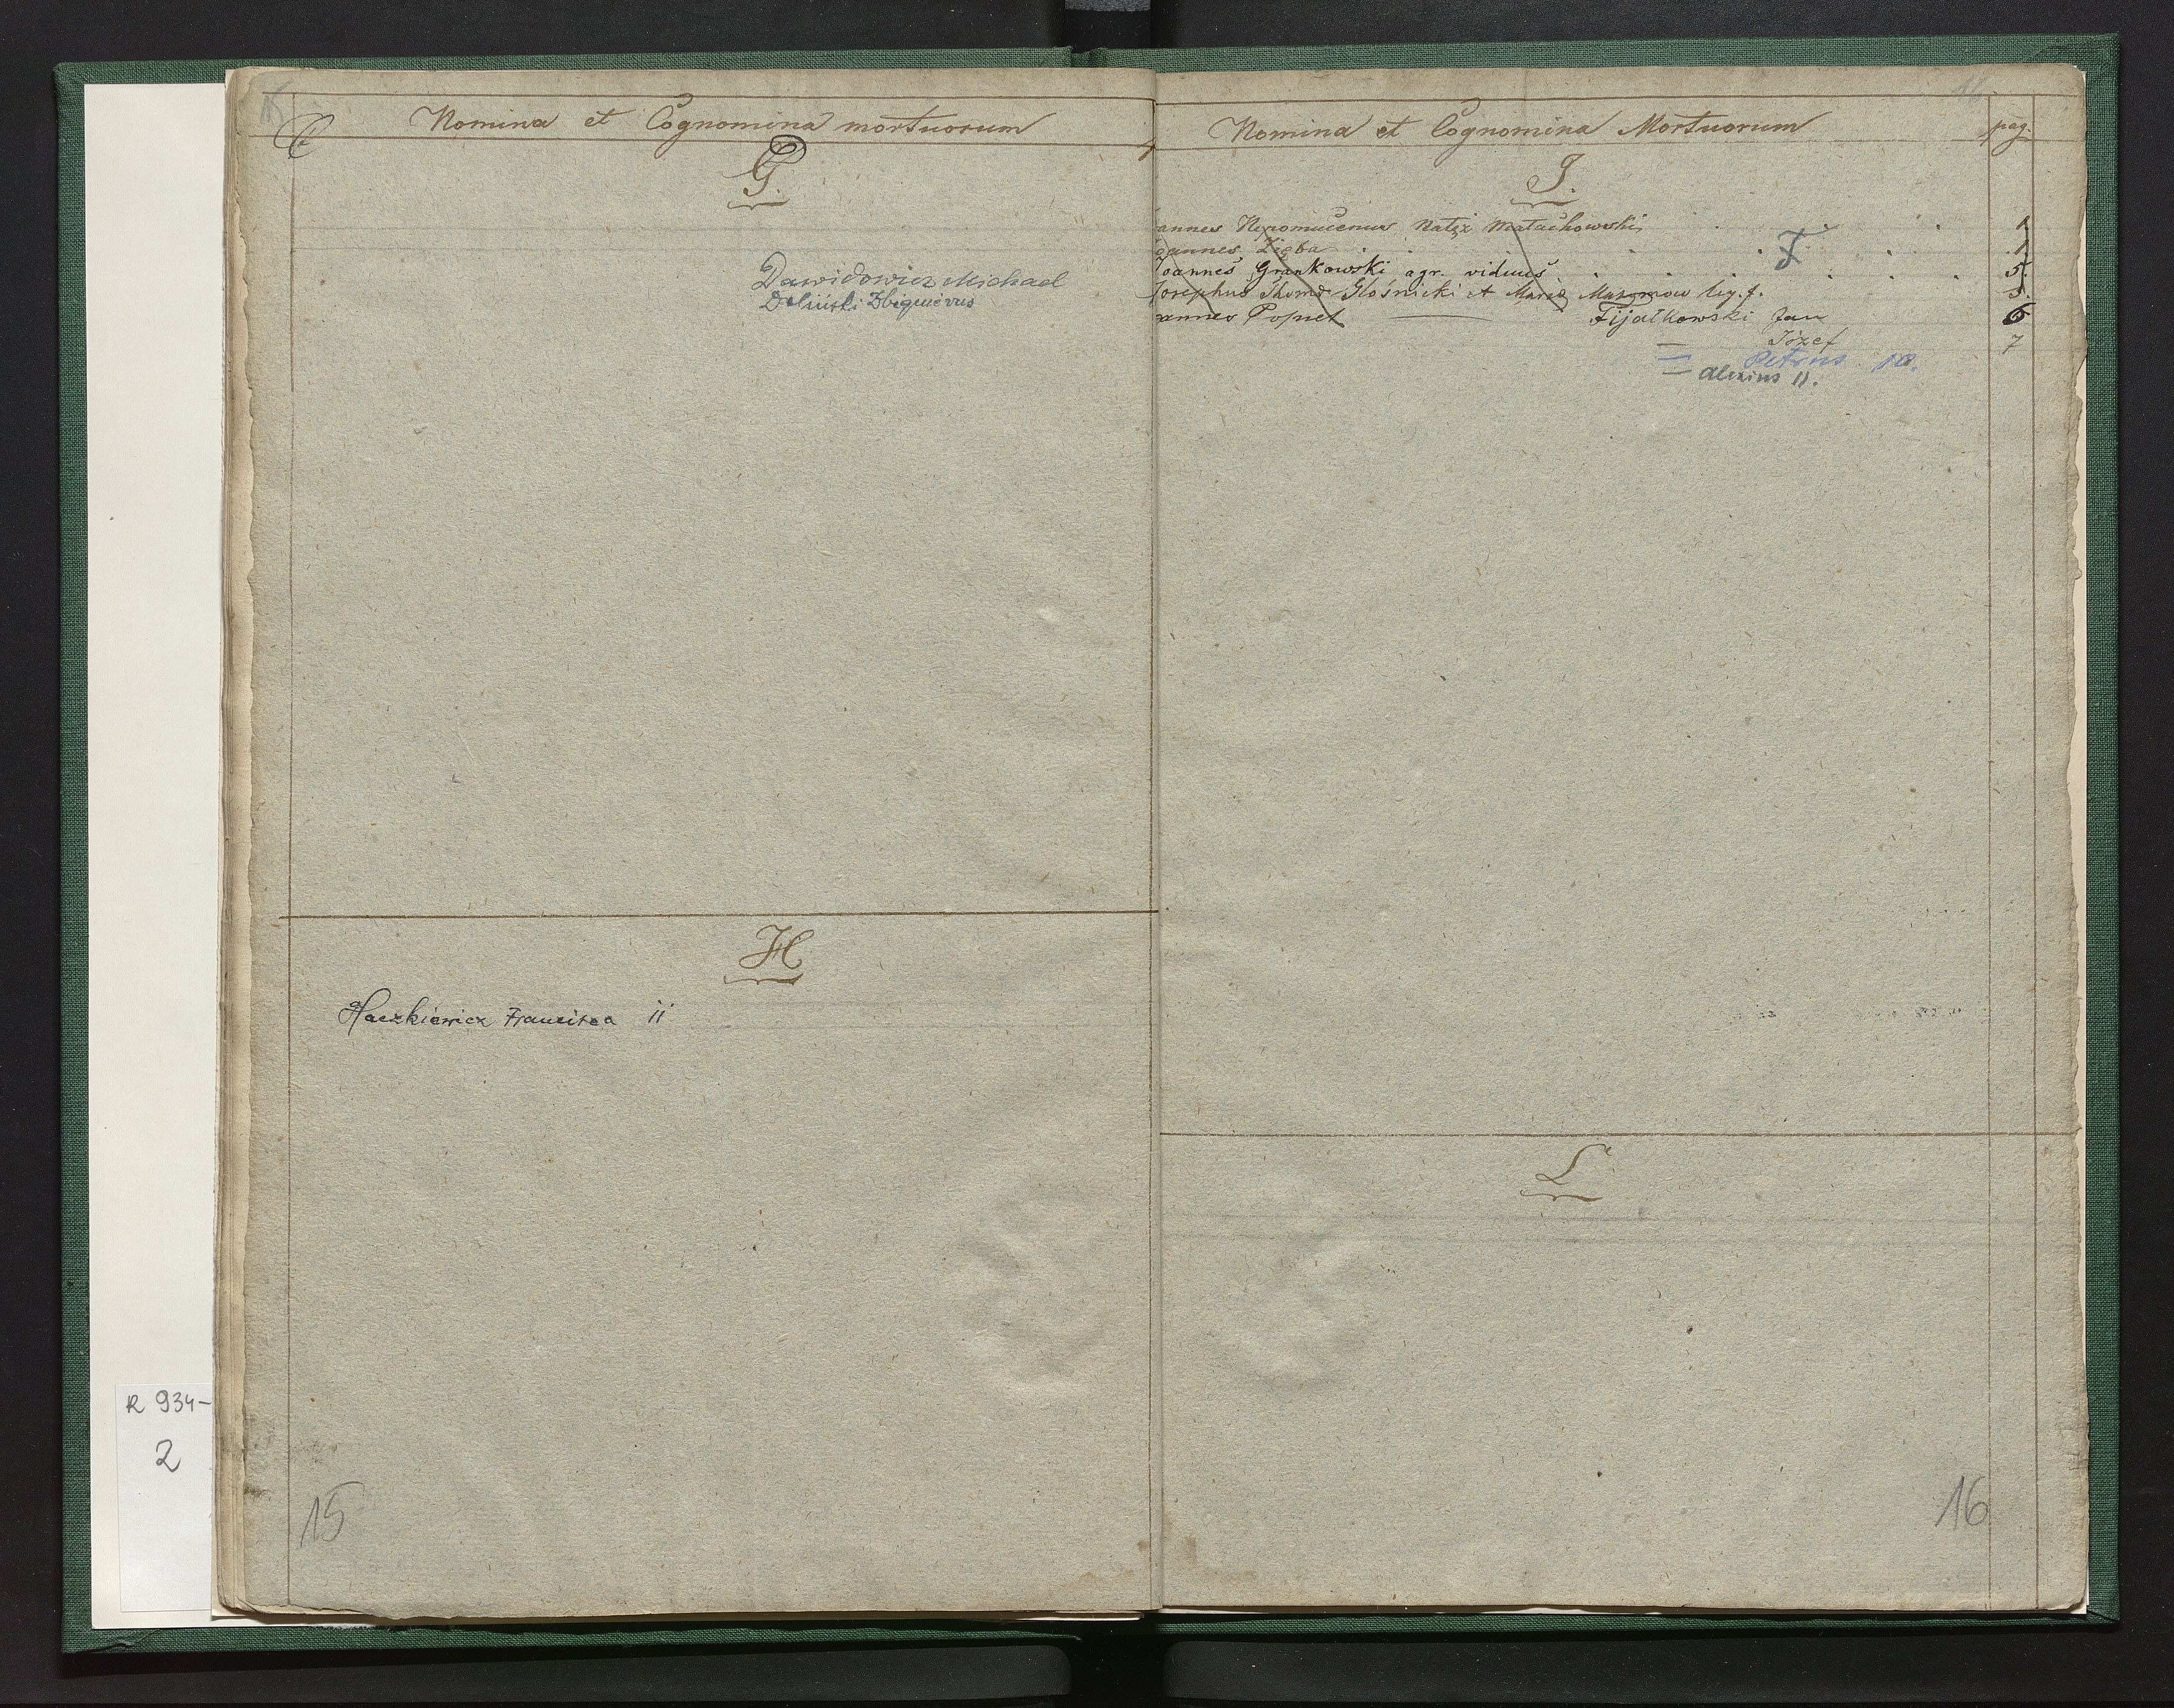 15
Nomina et Cognomina mortuorum
G.
Dawidowicz Michael
Deliński Zbigniewus
H
Haczkiewicz Francisca 11
15
R 934-
2
16
Nomina et Cognomina Mortuorum pag.
J.
annes Nepomucenus Małachowski 1
Joannes Zięba 1.
F
Joannes Grankowski agr. viduus 5.
Josephus Thomæ Głośnicki et Maria leg. f. 5.
annes Popiel Fijałkowski Jan 6
— Józef 7
= Petrus 10.
— Alexius 11.
L
16